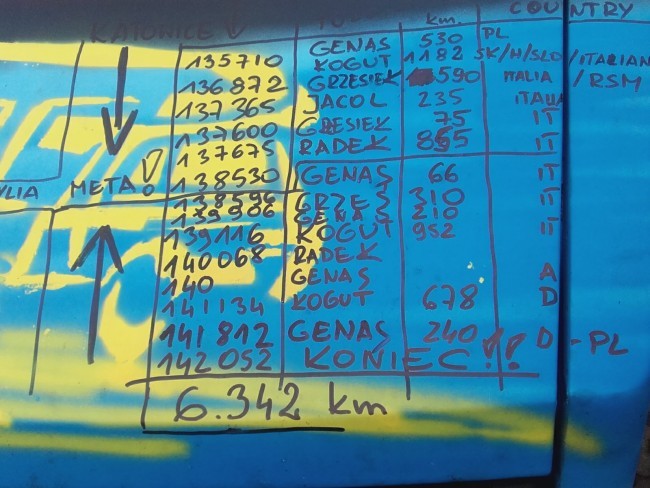 KATOWICE V km. COUNTRY
135710 GENAS 530 PL
136872 KOGUT 1182 SK/H/SLO/ITALIAN
137365 GRZESIEK 590 ITALIA / RSM
137600 JACOL 235 ITALIA
137675 GRESIEK 75 IT
138530 RADEK 855 IT
YLIA META! GENAS 66 IT
138596 GRZEŚ 310 IT
GENAS 210
139116 KOGUT 952 IT
140068 RADEK
140 GENAS A
141134 KOGUT 678 D
141812 GENAS 240 D - PL
142052 KONIEC!!
6.342 km